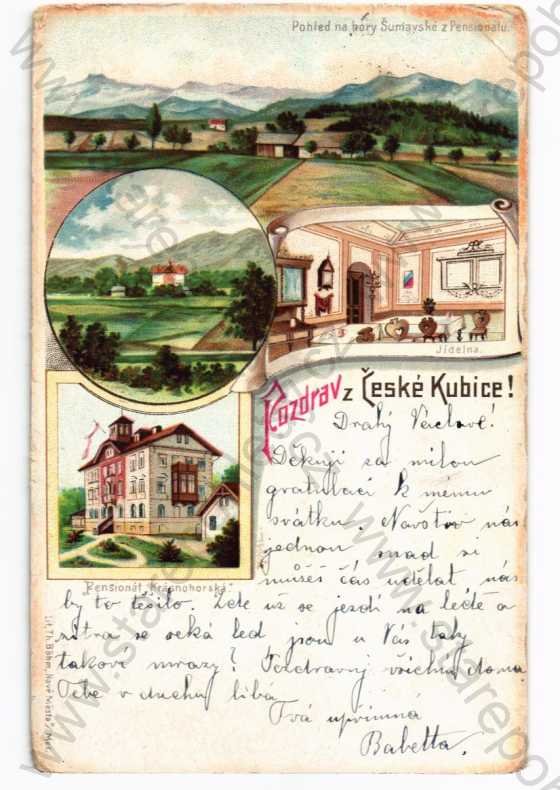 Pohled na hory Šumavské z Pensionátu.
Jídelna.
Pozdrav z České Kubice!
Drahý Václave!
Děkuji za milou
gratulaci k mému
svátku. Navštiv nás
jednou snad si
můžeš čas udělat nás
"Pensionát Krásnohorská"
by to těšilo. Zde už se jezdí na ledě a
zítra se seká led jsou u Vás taky
takové mrazy? Pozdravuj všechny doma
Tebe v duchu líbá
Tvá upřímná
Babetta.
Lit. Th. Böhm, Nové Město n/Met.